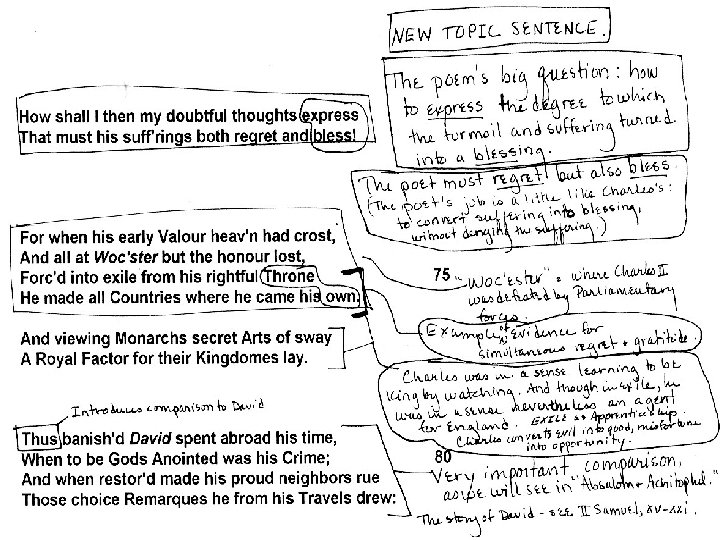 NEW TOPIC SENTENCE.
The poem's big question: how
to express the degree to which
the turmoil and suffering turned
into a blessing.
How shall I then my doubtful thoughts express
That must his suff'rings both regret and bless!
The poet must regret! but also bless.
(The poet's job is a little like Charles's:
to convert suffering into blessing,
without denying the suffering.)
For when his early Valour heav'n had crost,
And all at Woc'ster but the honour lost,
Forc'd into exile from his rightful Throne
He made all Countries where he came his own.
75
"Woc'ester" = where Charles II
was defeated by Parliamentary
forces.
Example of evidence for
simultaneous regret + gratitude.
And viewing Monarchs secret Arts of sway
A Royal Factor for their Kingdomes lay.
Charles was in a sense learning to be
King by watching. And though in exile, he
was in a sense nevertheless an agent
for England. EXILE as Apprenticeship.
Charles converts evil into good, misfortune
into opportunity.
Introduces comparison to David
Thus banish'd David spent abroad his time,
When to be Gods Anointed was his Crime;
And when restor'd made his proud neighbors rue
Those choice Remarques he from his Travels drew:
80
Very important comparison,
as we will see in "Absalom + Achitophel."
The story of David - see II Samuel, xv-xxi.